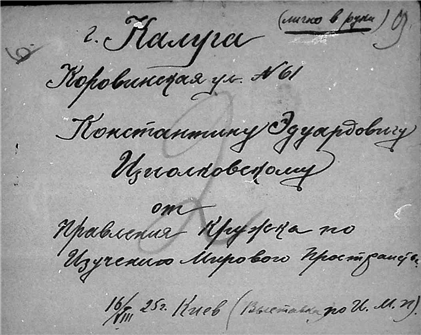 (лично в руки) 9
г. Калуга
Коровинская ул. № 61
Константину Эдуардовичу
Циолковскому
от
Правления Кружка по
Изучению Мирового Пространства
16/VIII 25 г. Киев (Выставка по И. М. П.)